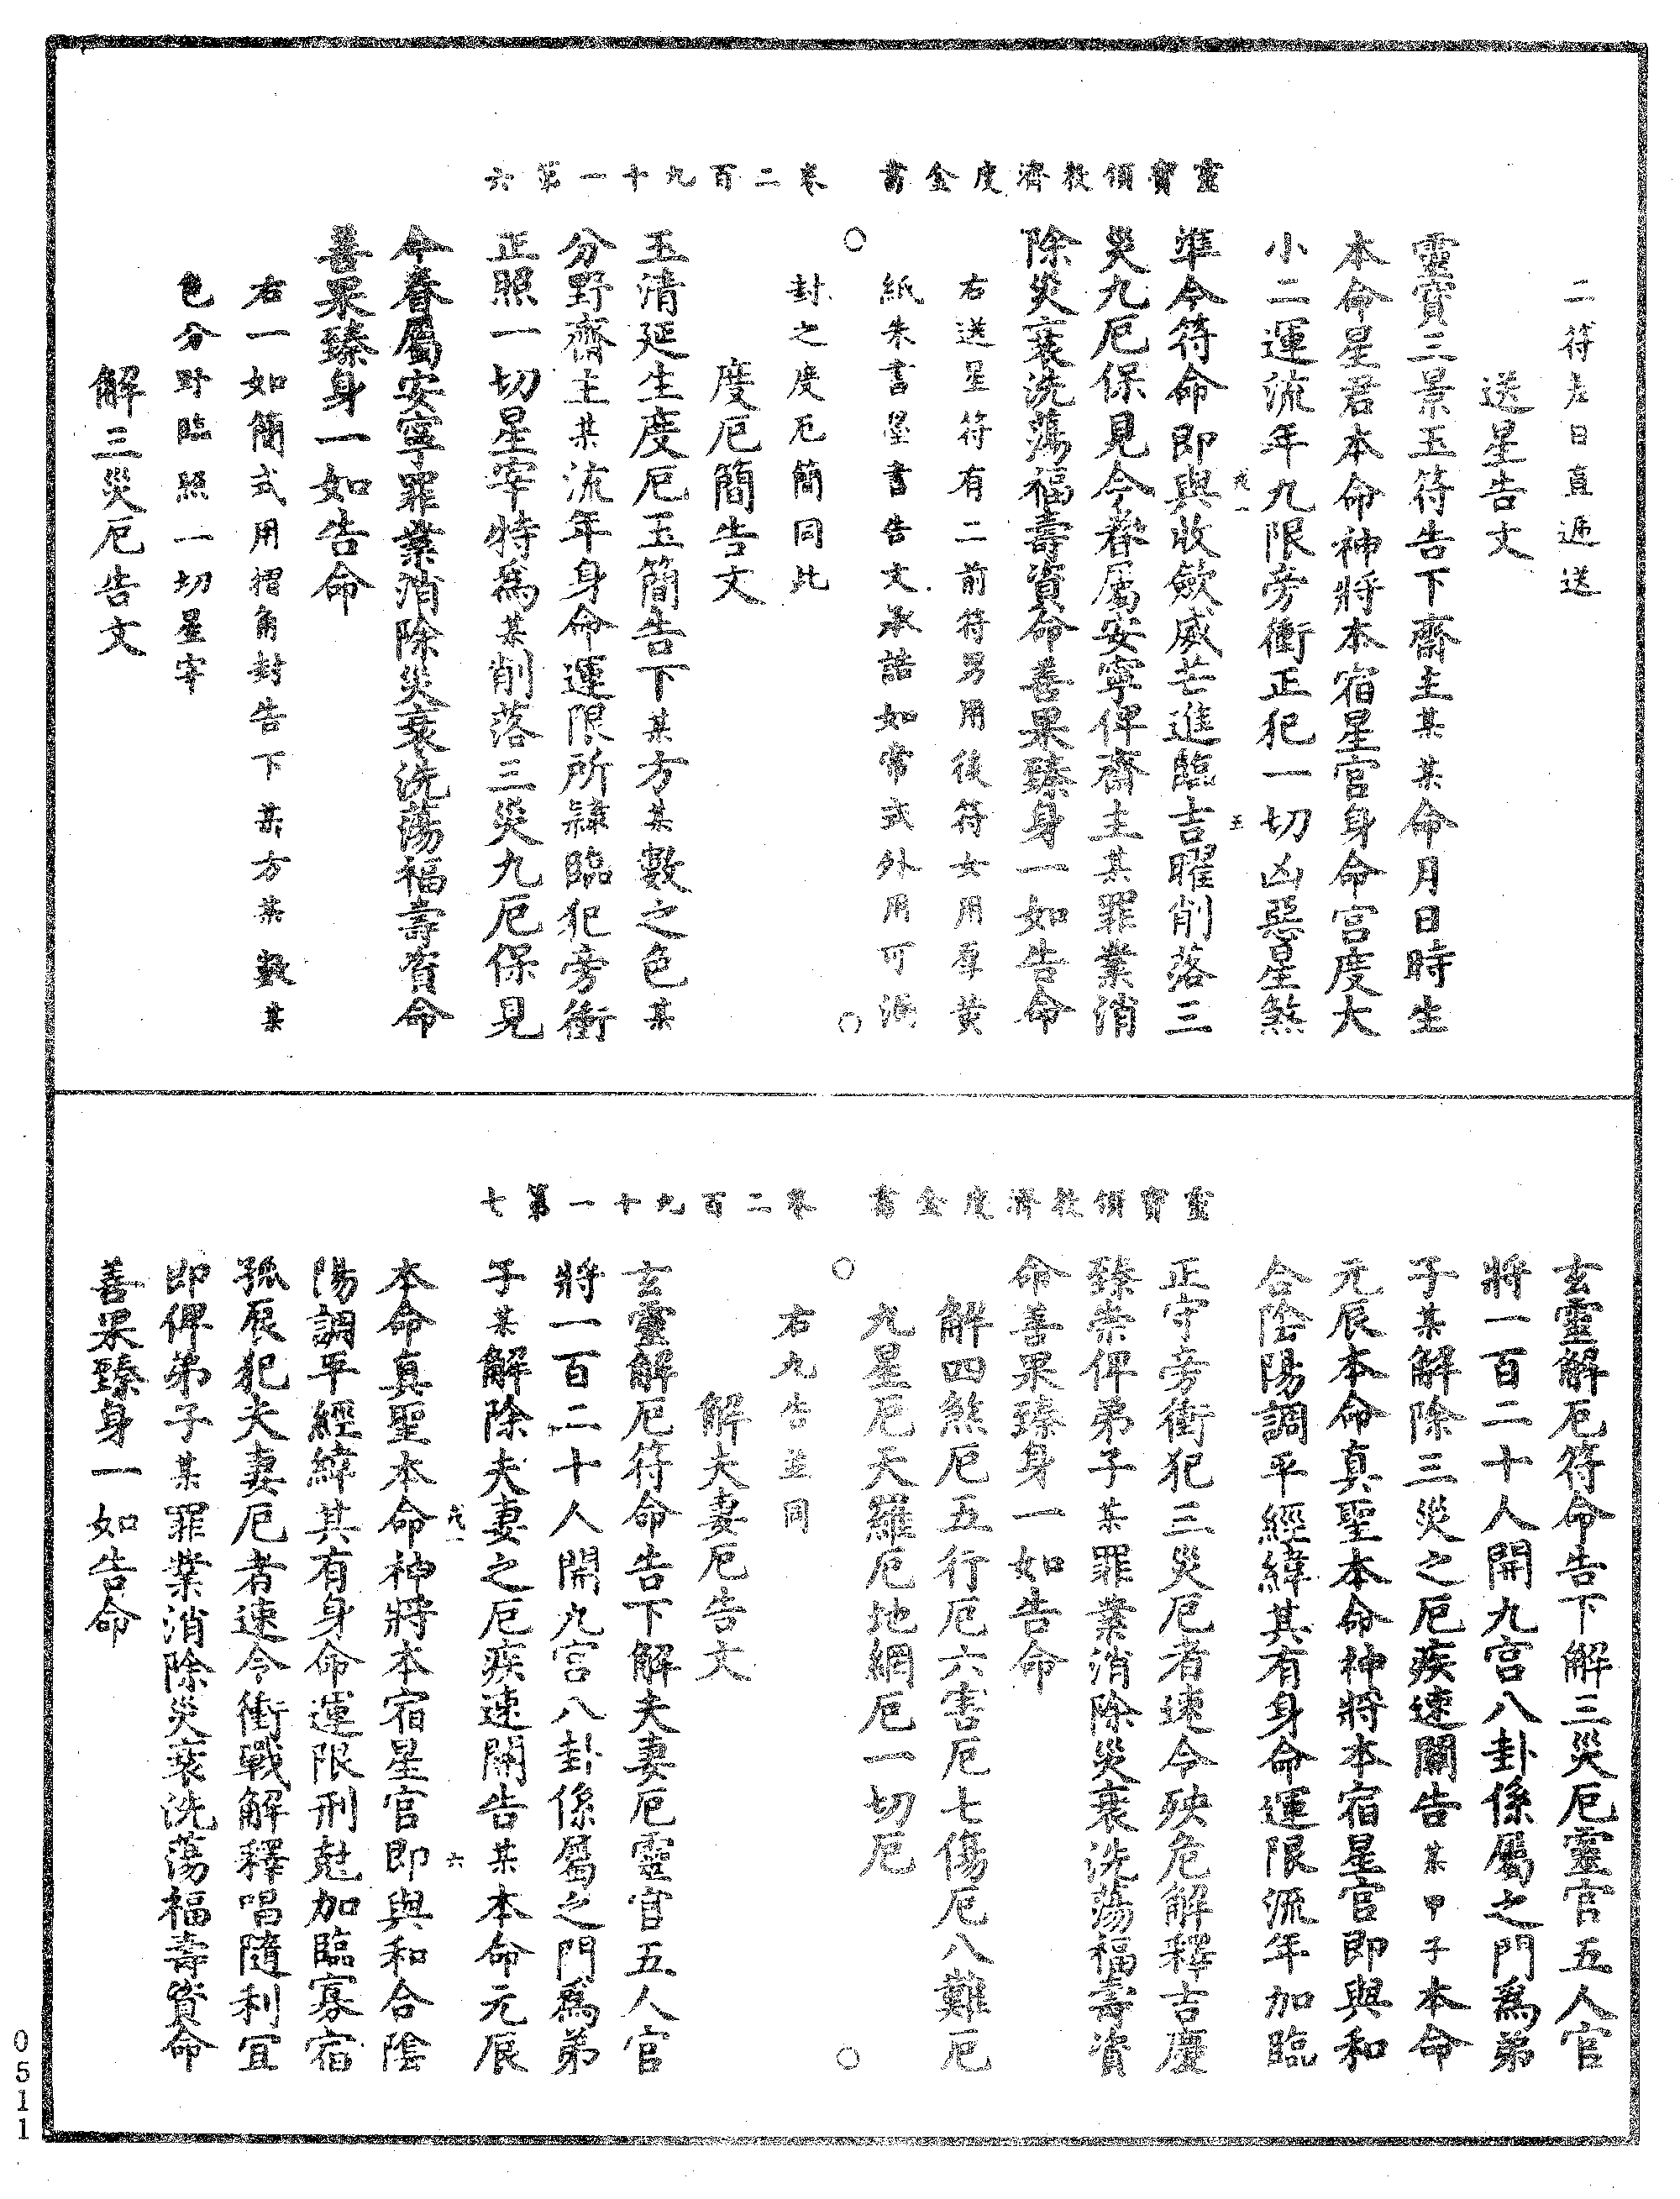 靈寶領教濟度金書 卷二百九十一第六
二符左日直逓送
送星告文
靈寶三景玉符告下齋主某某命月日時生
本命星君本命神將本宿星官身命宮度大
小二運流年九限旁衝正犯一切凶惡星煞
準令符命即與收歛威芒進臨吉曜削落三
災九厄保見今眷屬安寧俾齋主某罪業消
除災衰洗蕩福壽資命善果臻身一如告命
右送星符有二前符男用後符女用厚黄
紙朱書墨書告文承誥如常式外用可漏
封之度厄簡同此
度厄簡告文
玉清延生度厄玉簡告下某方某數之色某
分野齋主某流年身命運限所隸臨犯旁衝
正照一切星宰特為某削落三災九厄保見
今眷屬安寧罪業消除災衰洗蕩福壽資命
善果臻身一如告命
右一如簡式用摺角封告下某方某數某
色分野臨照一切星宰
解三災厄告文
靈寶領教濟度金書 卷二百九十一第七
玄靈解厄符命告下解三災厄靈官五人官
將一百二十人開九宮八卦係屬之門爲弟
子某解除三災之厄疾速關告某甲子本命
元辰本命真聖本命神將本宿星官即與和
合陰陽調平經緯其有身命運限流年加臨
正守旁衝犯三災厄者速令殃危解釋吉慶
臻崇俾弟子某罪業消除災衰洗蕩福壽資
命善果臻身一如告命
解四煞厄五行厄六害厄七傷厄八難厄
九星厄天羅厄地網厄一切厄
右九告並同
解夫妻厄告文
玄靈解厄符命告下解夫妻厄靈官五人官
將一百二十人開九宮八卦係屬之門爲弟
子某解除夫妻之厄疾速關告某本命元辰
本命真聖本命神將本宿星官即與和合陰
陽調平經緯其有身命運限刑尅加臨寡宿
孤辰犯夫妻厄者速令衝戰解釋唱隨利宜
即俾弟子某罪業消除災衰洗蕩福壽資命
善果臻身一如告命
0511